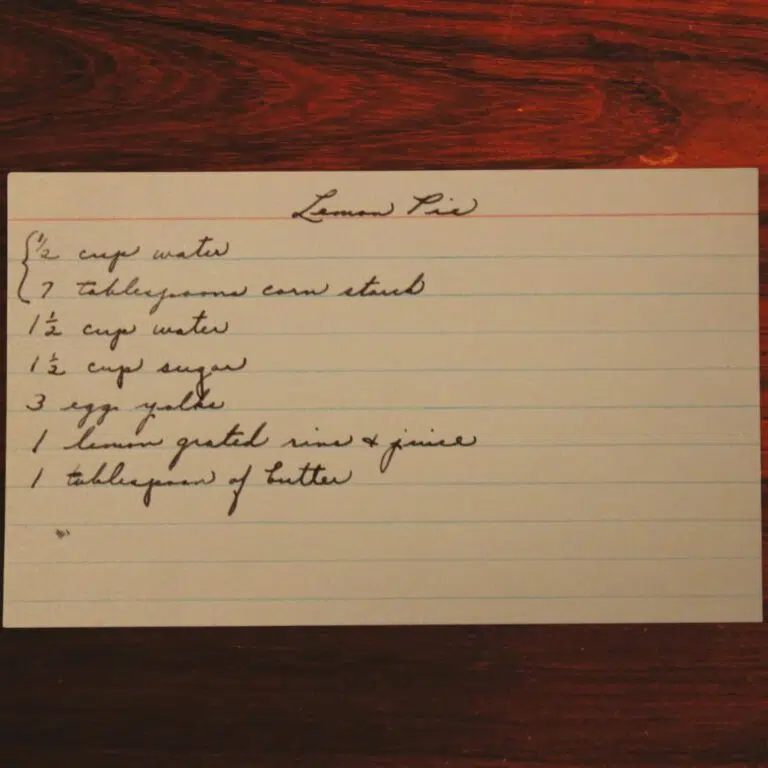 Lemon Pie
1/2 cup water
7 tablespoons corn starch
1 1/2 cup water
1 1/2 cup sugar
3 egg yolks
1 lemon grated rine & juice
1 tablespoon of butter